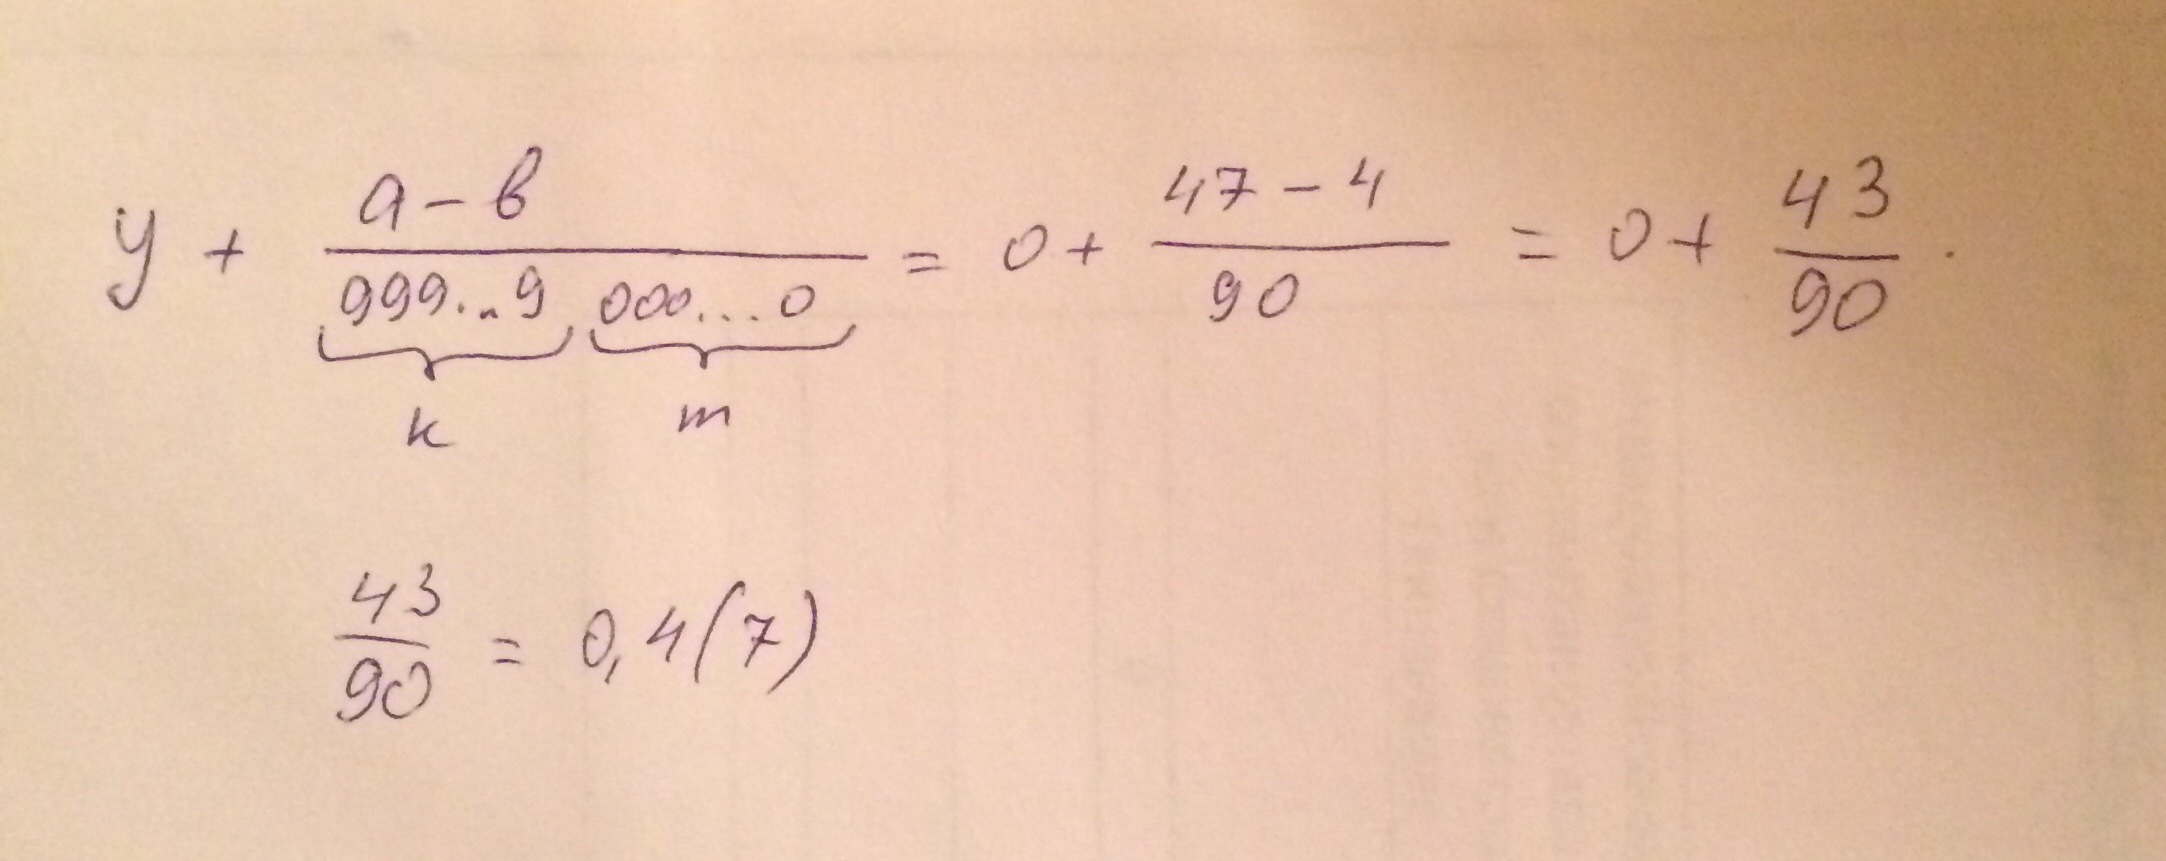 y + a-b / 999...9 000...0 = 0 + 47-4 / 90 = 0 + 43 / 90 .
k m
43 / 90 = 0,4(7)